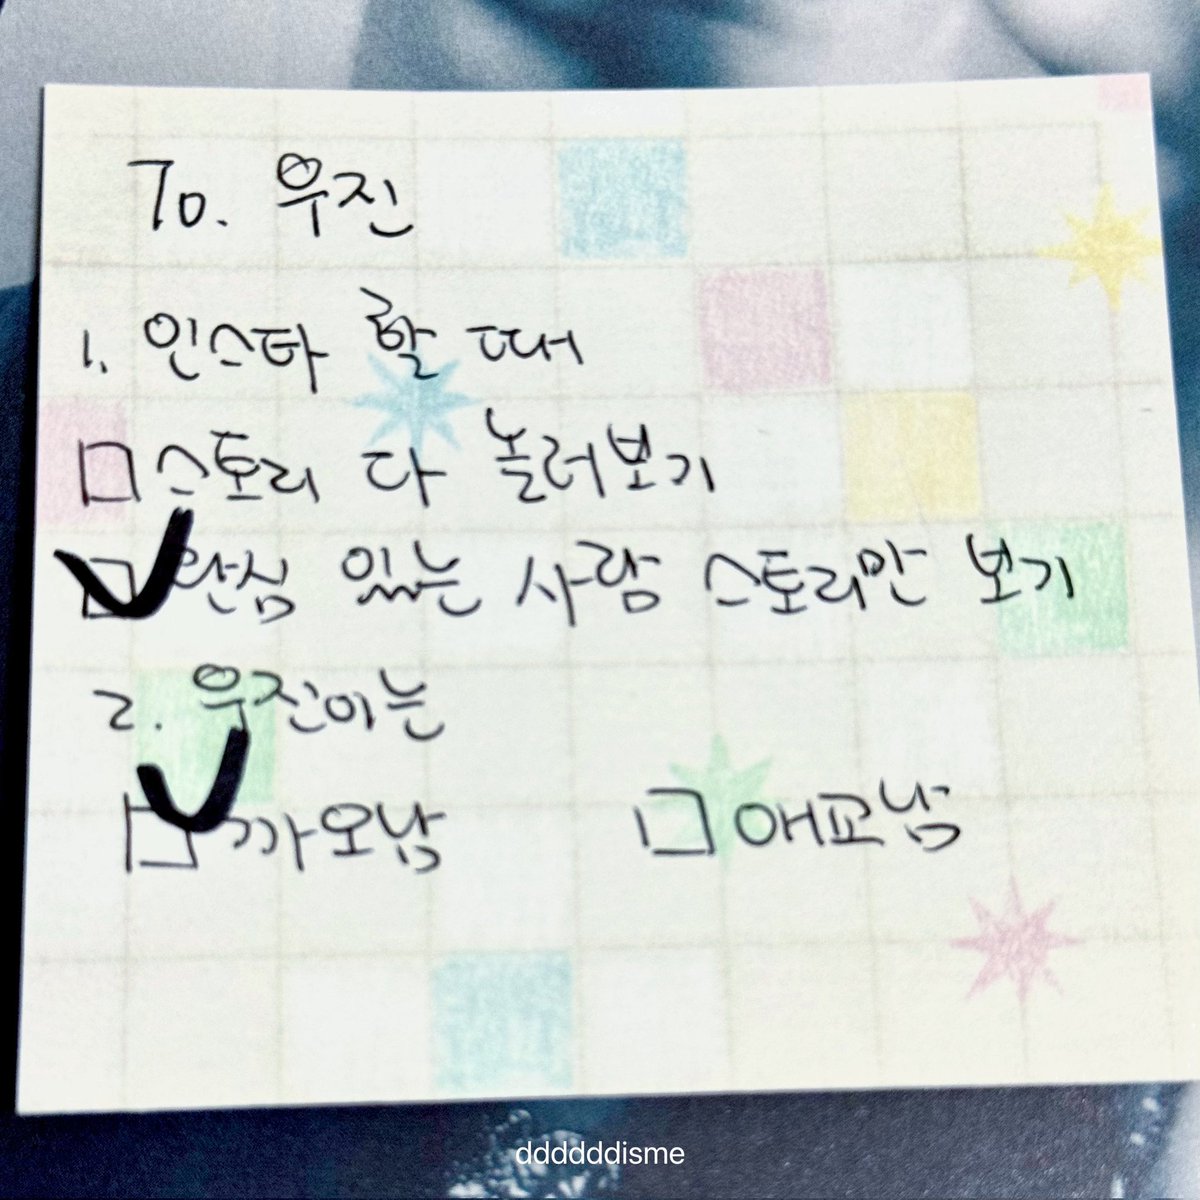 To. 우진
1. 인스타 할 때
□ 스토리 다 눌러보기
□ 관심 있는 사람 스토리만 보기
2. 우진이는
□ 까오남 □ 애교남
ddddddisme